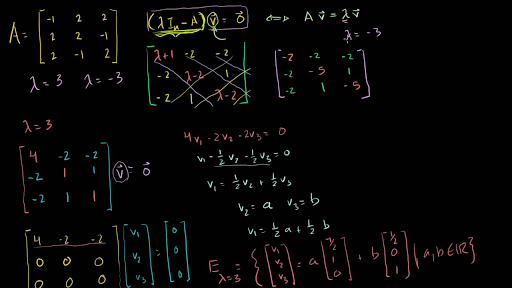 A = [ -1 2 2
2 2 -1
2 -1 2 ]
λ = 3 λ = -3
(λ Iₙ - A) v⃗ = 0⃗ ⟺ A v⃗ = λ v⃗
λ = -3
[ λ+1 -2 -2
-2 λ-2 1
-2 1 λ-2 ]
[ -2 -2 -2
-2 -5 1
-2 1 -5 ]
λ = 3
[ 4 -2 -2
-2 1 1
-2 1 1 ] v⃗ = 0⃗
4v₁ - 2v₂ - 2v₃ = 0
v₁ - ½ v₂ - ½ v₃ = 0
v₁ = ½ v₂ + ½ v₃
v₂ = a v₃ = b
v₁ = ½ a + ½ b
[ 4 -2 -2
0 0 0
0 0 0 ] [ v₁
v₂
v₃ ] = [ 0
0
0 ]
E λ=3 = { [ v₁
v₂
v₃ ] = a [ 1/2
1
0 ] + b [ 1/2
0
1 ] | a, b ∈ ℝ }